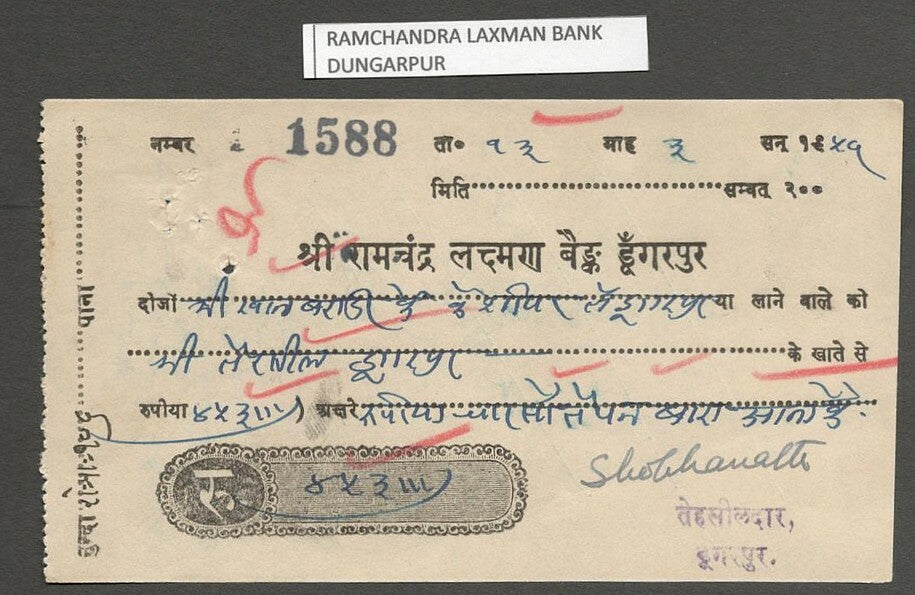 RAMCHANDRA LAXMAN BANK
DUNGARPUR
नम्बर 1588 ता० १३ माह ३ सन् १९५१
मिति सम्वत् २००
श्री रामचंद्र लक्ष्मण बैङ्क डूँगरपुर
दीजो श्री डूंगरपुर या लाने वाले को
श्री तेसील डूंगरपुर के खाते से
रुपीया ४५३॥।) अखरे रुपीया चार सौ तेपन बारा आना
रु ४५३॥।)
Shobhanath
तेहसीलदार,
डूंगरपुर.
पाना